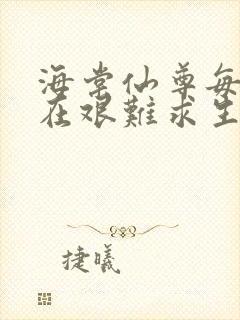 海棠仙尊每
在艰難求生
捷曦